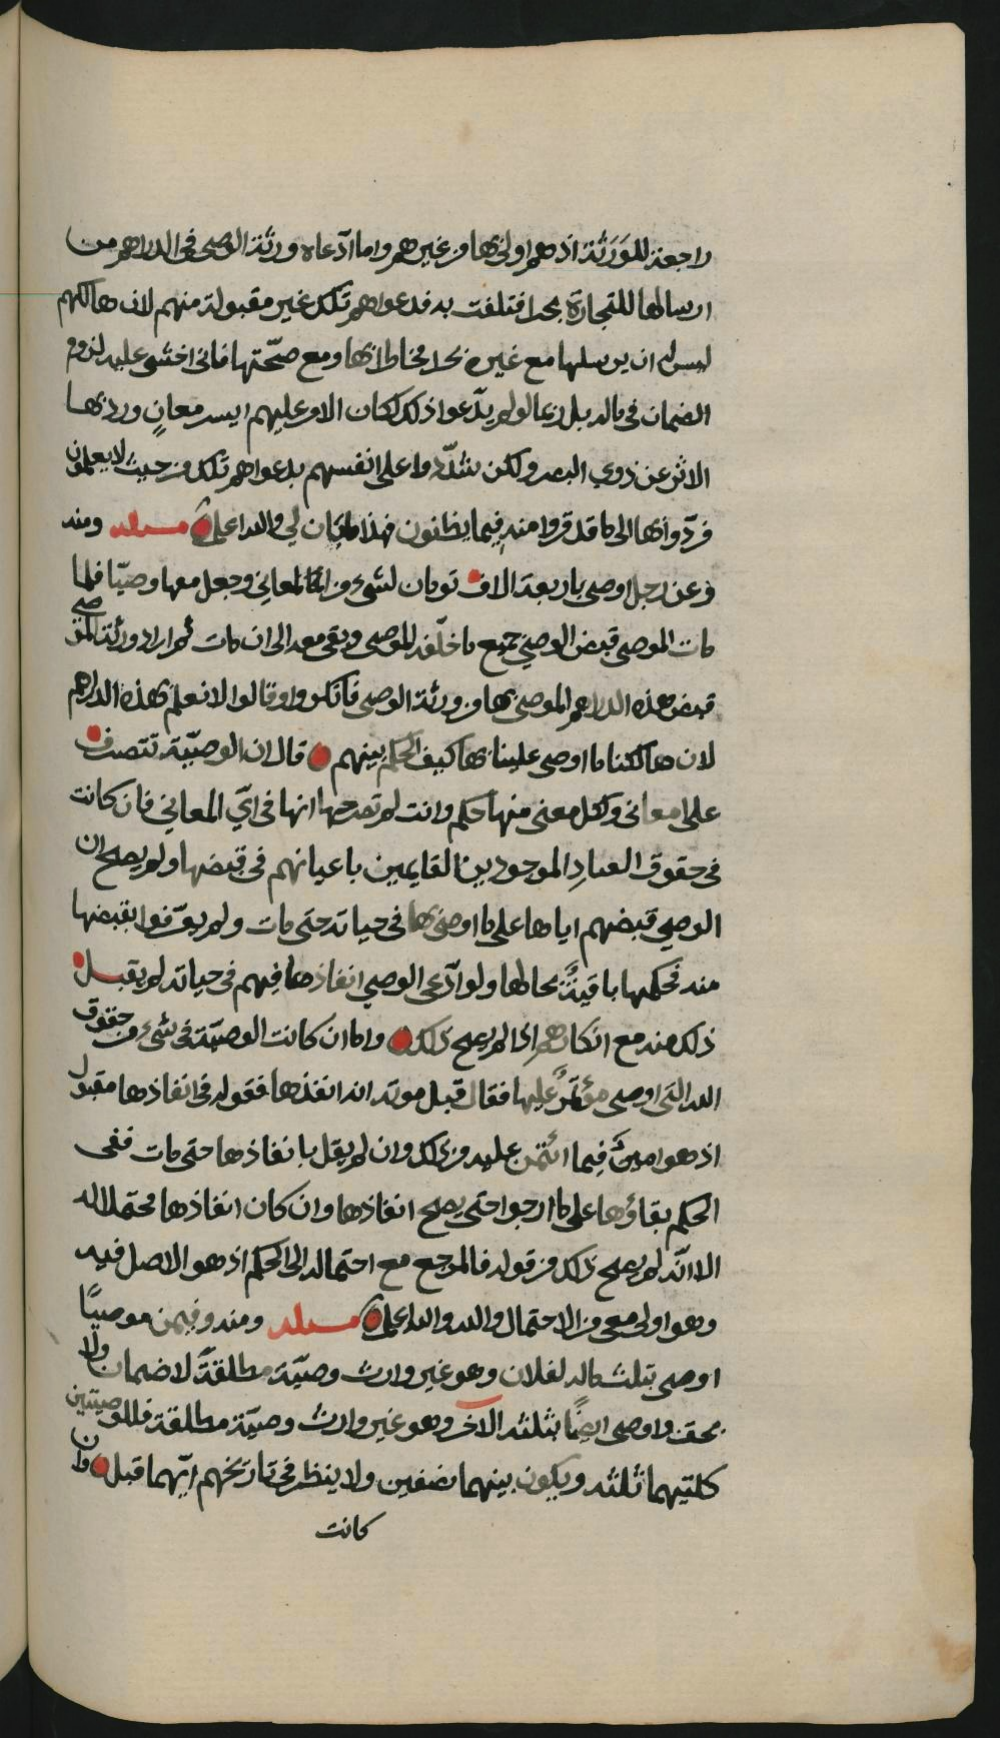 راجعة للوَرَثة اذ هم اولى بها من غيرهم واما ادّعاه ورثة الوصي في الدراهم من
ارسالها للتجارة بحرا فتلفت به فدعواهم تلك غير مقبولة منهم لان هالكهم
ليس له ان يرسلها مع غيره بحرا مخاطرا بها ومع صحّتها فاني اخشى عليه لزوم
الضمان في ماله بل انها لو لم يدّعوا ذلك لكان الامر عليهم ايسر معانٍ ورد بها
الاثر عن ذوي البصر ولكن شدّدوا على انفسهم بدعواهم تلك من حيث لا يعلمون
فردّوا بها الى ما قد فروا منه فيما يظنون فهذا ما بان لي والله اعلم مسئلة ومنه
وعن رجل اوصى باربعة الاف تومان لشيء من المعاني وجعل معها وصيّا فلما
مات الموصي قبض الوصي جميع ما خلّفه الموصي وبقي معه الى ان مات ثم اراد ورثة الموصي
قبض هذه الدراهم الموصى بها من ورثة الوصي فانكروا وقالوا لا نعلم بهذه الدراهم
لان هالكنا ما اوصى علينا بها كيف الحكم بينهم قال ان الوصيّة تتصرف
على معاني ولكل معنى منها حكم وانت لم تصرحها انها في ايّ المعاني فان كانت
في حقوق العبادِ الموجودين القايمين باعيانهم في قبضها ولم يصح ان
الوصي قبضهم اياها على ما اوصى بها في حياته حتى مات ولم يعرّفوا بقبضها
منه فحكمها باقيةٌ بحالها ولو ادّعى الوصي انفاذها فيهم في حياته لم يقبل
ذلك منه مع انكارهم اذا لم يصح ذلك واما ان كانت الوصيّة في شيء من حقوق
الله التي اوصى مؤتمَرٌ عليها فقال قبل موته انه انفذها فقوله في انفاذها مقبول
اذ هو امين فيما ائتمن عليه من ذلك وان لم يقل بانفاذها حتى مات ففي
الحكم بقاؤها على ما ارجوا حتى يصح انفاذها وان كان انفاذها محتملا له
الا انّه لم يصح ذلك من قوله فالمرجع مع احتماله الى الحكم اذ هو الاصل فيه
وهو اولى معي من الاحتمال والله اعلم مسئلة ومنه وفيمن موصيًا
اوصى بثلث ماله لفلان وهو غير وارث وصيّة مطلقةً لا ضمان ولا
بحق واوصى ايضًا بثلثه الآخر وهو غير وارث وصيّة مطلقة فللوصيتين
كلتيهما ثلثه ويكون بينهما نصفين ولا ينظر في تاريخهم ايّهما قبل وان
كانت